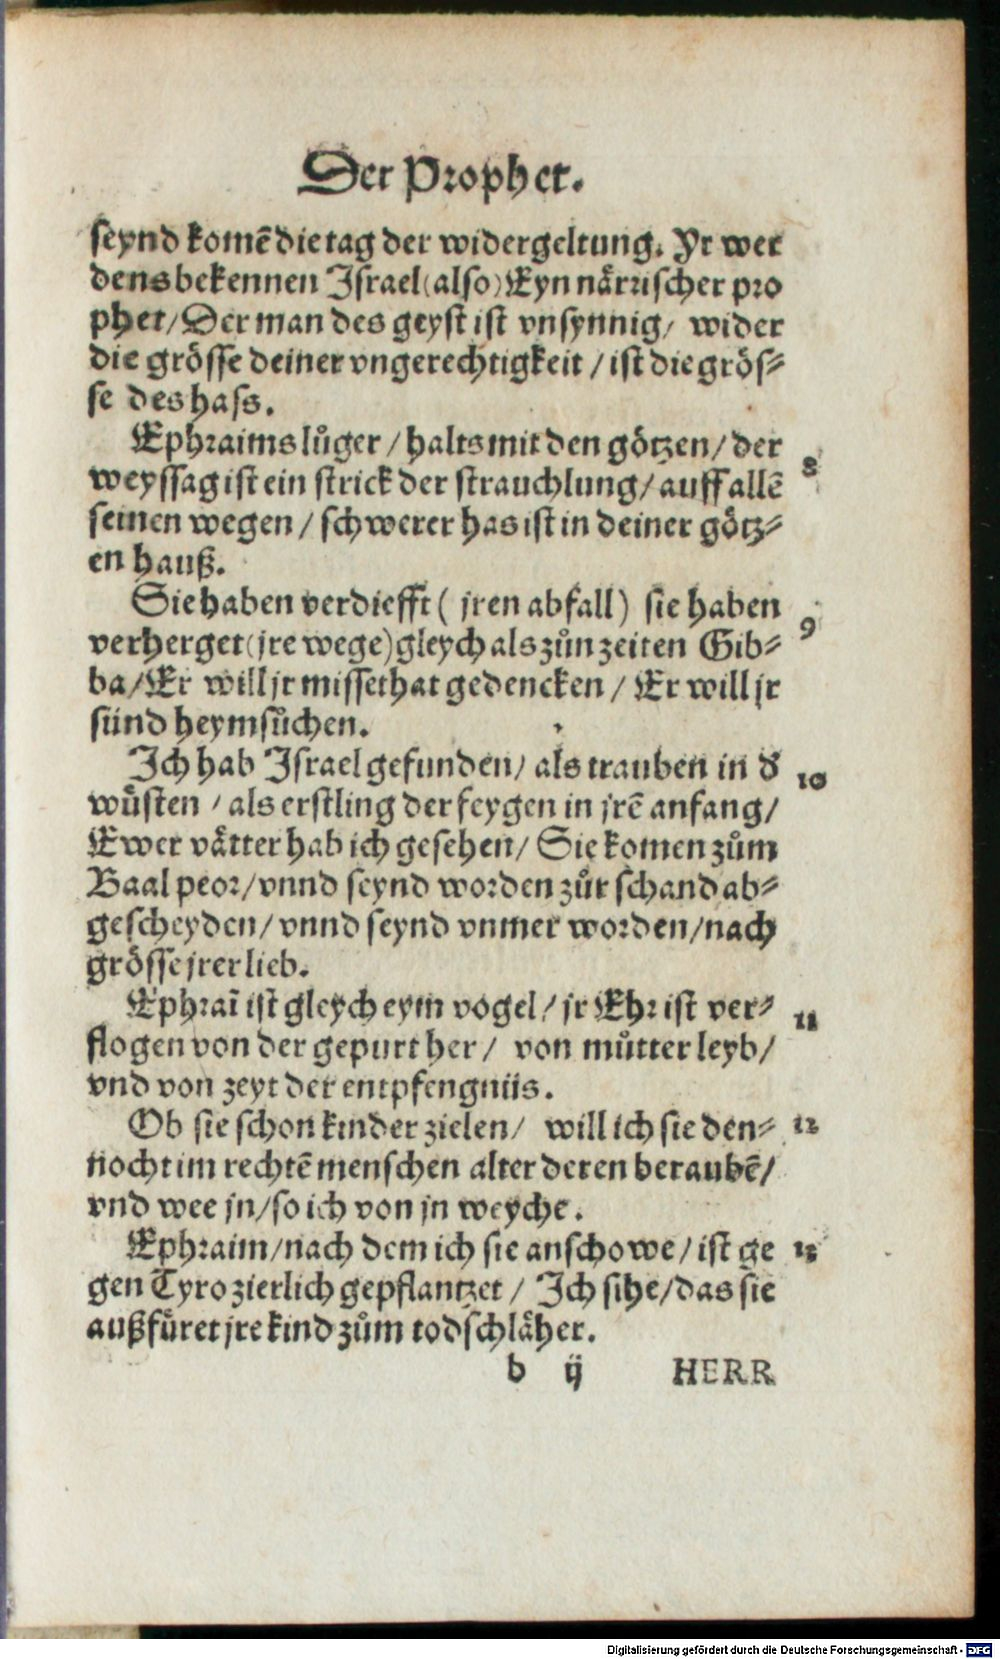 Der Prophet.
seynd komē die tag der widergeltung. Yr wer
dens bekennen Israel (also) Eyn närrischer pro
phet/ Der man des geyst ist vnsynnig/ wider
die grösse deiner vngerechtigkeit / ist die grös⸗
se des hass.
Ephraims lůger / halts mit den götzen/ der 8
weyssag ist ein strick der strauchlung/ auff allē
seinen wegen / schwerer has ist in deiner götz⸗
en hauß.
Sie haben verdiefft ( jren abfall) sie haben 9
verherget (jre wege) gleych als zůn zeiten Gib⸗
ba/ Er will jr missethat gedencken / Er will jr
sünd heymsůchen.
Ich hab Israel gefunden/ als trauben in d̕ 10
wüsten / als erstling der feygen in jrē anfang/
Ewer vätter hab ich gesehen/ Sie komen zům
Baal peor/ vnnd seynd worden zůr schand ab⸗
gescheyden/ vnnd seynd vnmer worden/ nach
grösse jrer lieb.
Ephraī ist gleych eym vogel/ jr Ehr ist ver⸗ 11
flogen von der gepurt her / von můtter leyb/
vnd von zeyt der entpfengniis.
Ob sie schon kinder zielen/ will ich sie den⸗ 12
nocht im rechtē menschen alter deren beraubē/
vnd wee jn/ so ich von jn weyche.
Ephraim/ nach dem ich sie anschowe/ ist ge 13
gen Tyro zierlich gepflantzet / Ich sihe/ das sie
außfüret jre kind zům todschläher.
b ij HERR
Digitalisierung gefördert durch die Deutsche Forschungsgemeinschaft - DFG